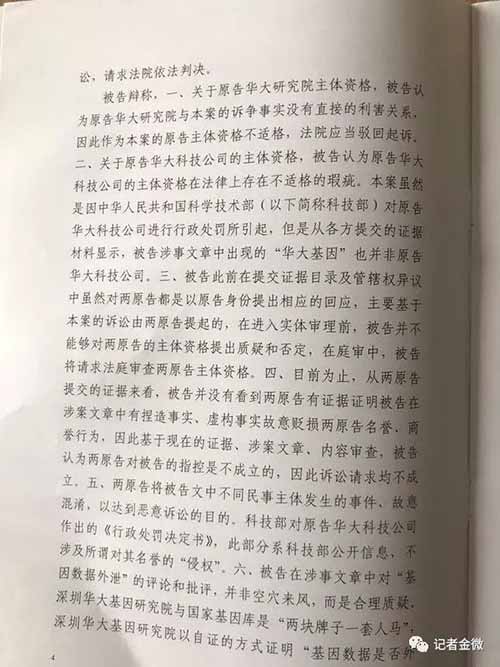 讼，请求法院依法判决。
被告辩称，一、关于原告华大研究院主体资格，被告认
为原告华大研究院与本案的诉争事实没有直接的利害关系，
因此作为本案的原告主体资格不适格，法院应当驳回起诉。
二、关于原告华大科技公司的主体资格，被告认为原告华大
科技公司的主体资格在法律上存在不适格的瑕疵。本案虽然
是因中华人民共和国科学技术部（以下简称科技部）对原告
华大科技公司进行行政处罚所引起，但是从各方提交的证据
材料显示，被告涉事文章中出现的“华大基因”也并非原告
华大科技公司。三、被告此前在提交证据目录及管辖权异议
中虽然对两原告都是以原告身份提出相应的回应，主要基于
本案的诉讼由两原告提起的，在进入实体审理前，被告并不
能够对两原告的主体资格提出质疑和否定，在庭审中，被告
将请求法庭审查两原告主体资格。四、目前为止，从两原告
提交的证据来看，被告并没有看到两原告有证据证明被告在
涉案文章中有捏造事实、虚构事实故意贬损两原告名誉、商
誉行为，因此基于现在的证据、涉案文章、内容审查，被告
认为两原告对被告的指控是不成立的，因此诉讼请求均不成
立。五、两原告将被告文中不同民事主体发生的事件、故意
混淆，以达到恶意诉讼的目的。科技部对原告华大科技公司
作出的《行政处罚决定书》，此部分系科技部公开信息，不
涉及所谓对其名誉的“侵权”。六、被告在涉事文章中对“基
因数据外泄”的评论和批评，并非空穴来风，而是合理质疑，
深圳华大基因研究院与国家基因库是“两块牌子一套人马”；
深圳华大基因研究院以自证的方式证明“基因数据是否外
4
记者金微